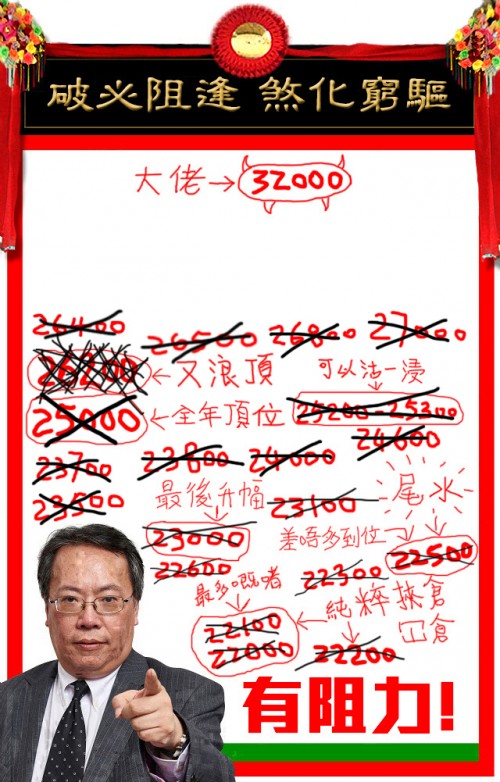 驅窮化煞 逢阻必破
大佬→32000
26400 26500 26800 27000
←又浪頂 可以沽一浸
25000 ←全年頂位 25200-25300
24600
23700 23800 24000
23500 最後升幅 23100 尾水
23000 差唔多到位→ 22500
22600 22300
最多嘅啫
22100 純粹挾倉
22000 22200 冚倉
有阻力!